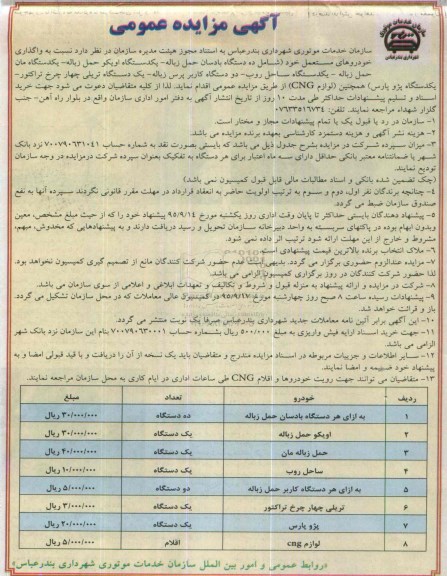 آگهی مزایده عمومی
سازمان خدمات موتوری
شهرداری بندرعباس
سازمان خدمات موتوری شهرداری بندرعباس به استناد مجوز هیئت مدیره سازمان در نظر دارد نسبت به واگذاری
خودروهای مستعمل خود (شامل ده دستگاه بادسان حمل زباله- یکدستگاه اویکو حمل زباله- یکدستگاه مان
حمل زباله - یکدستگاه ساحل روب- دو دستگاه کاربر پرس زباله- یک دستگاه تریلی چهار چرخ تراکتور-
یکدستگاه پژو پارس) همچنین (لوازم CNG) از طریق مزایده عمومی اقدام نماید. لذا از کلیه متقاضیان دعوت می شود جهت خرید
اسناد و تسلیم پیشنهادات حداکثر طی مدت ۱۰ روز از تاریخ انتشار آگهی به دفتر امور اداری سازمان واقع در بلوار راه آهن- جنب
گلزار شهداء مراجعه نمایند. تلفن:
۱- سازمان در رد یا قبول یک یا تمام پیشنهادات مجاز و مختار است.
۲- هزینه نشر آگهی و هزینه دستمزد کارشناسی بعهده برنده مزایده می باشد.
۳- میزان سپرده شرکت در مزایده بشرح جدول ذیل می باشد که بایستی بصورت نقد به شماره حساب ۷۰۰۷۹۰۶۳۱۰۴۱ نزد بانک
شهر یا ضمانتنامه معتبر بانکی حداقل دارای سه ماه اعتبار برای هر دستگاه به تفکیک بعنوان سپرده شرکت درمزایده در وجه سازمان
تودیع نمایند.
(چک تضمین شده بانکی و اسناد مطالبات مالی قابل قبول کمیسیون نمی باشد)
۴- چنانچه برندگان نفر اول، دوم و سوم به ترتیب اولویت حاضر به انعقاد قرارداد در مهلت مقرر قانونی نگردند سپرده آنها به نفع
صندوق سازمان ضبط می گردد.
۵- پیشنهاد دهندگان بایستی حداکثر تا پایان وقت اداری روز یکشنبه مورخ ۹۵/۹/۱۴ پیشنهاد خود را که از حیث مبلغ مشخص، معین
وبدون ابهام بوده در پاکتهای سربسته به واحد دبیرخانه سازمان تحویل و رسید دریافت دارند و به پیشنهادهایی که مخدوش، مبهم،
مشروط و خارج از این مهلت ارائه شود ترتیب اثر داده نمی شود.
۶- ملاک انتخاب برنده بالاترین قیمت پیشنهادی است.
۷- مزایده عندالزوم حضوری برگزار می گردد. بدیهی است عدم حضور شرکت کنندگان مانع از تصمیم گیری کمیسیون نخواهد بود.
لذا حضور شرکت کنندگان در روز برگزاری کمیسیون الزامی می باشد.
۸- شرکت در مزایده و ارائه پیشنهاد به منزله قبول و شروط و تکالیف و تعهدات ابلاغی و اعلامی از سوی سازمان می باشد.
۹- پیشنهادات رسیده ساعت ۸ صبح روز چهارشنبه مورخ ۹۵/۹/۱۷ در کمیسیون عالی معاملات که در محل سازمان تشکیل می گردد.
باز و قرائت خواهد شد.
۱۰- این آگهی برابر آئین نامه معاملات جدید شهرداری بندرعباس صرفا یک نوبت منتشر می گردد.
۱۱- جهت خرید اسناد ارایه فیش واریزی به مبلغ ۵۰۰/۰۰۰ ریال بشماره حساب ۷۰۰۷۹۰۶۳۰۰۰۱ بنام این سازمان نزد بانک شهر
الزامی می باشد.
۱۲- سایر اطلاعات و جزییات مربوطه در اسناد مزایده مندرج و متقاضیان باید یک نسخه از آن را دریافت و با قید قبولی امضا و به
پیشنهاد خود ضمیمه و امضا نمایند.
۱۳- متقاضیان می توانند جهت رویت خودروها و اقلام CNG طی ساعات اداری در ایام کاری به محل سازمان مراجعه نمایند.
ردیف خودرو تعداد مبلغ
۱ به ازای هر دستگاه بادسان حمل زباله ده دستگاه ۳۰/۰۰۰/۰۰۰ ریال
۲ اویکو حمل زباله یک دستگاه ۳۰/۰۰۰/۰۰۰ ریال
۳ حمل زباله مان یک دستگاه ۴۰/۰۰۰/۰۰۰ ریال
۴ ساحل روب یک دستگاه ۱۰/۰۰۰/۰۰۰ ریال
۵ به ازای هر دستگاه کاربر حمل زباله دو دستگاه ۵/۰۰۰/۰۰۰ ریال
۶ تریلی چهار چرخ تراکتور یک دستگاه ۳/۰۰۰/۰۰۰ ریال
۷ پژو پارس یک دستگاه ۲۰/۰۰۰/۰۰۰ ریال
۸ لوازم cng اقلام ۵/۰۰۰/۰۰۰ ریال
«روابط عمومی و امور بین الملل سازمان خدمات موتوری شهرداری بندرعباس»